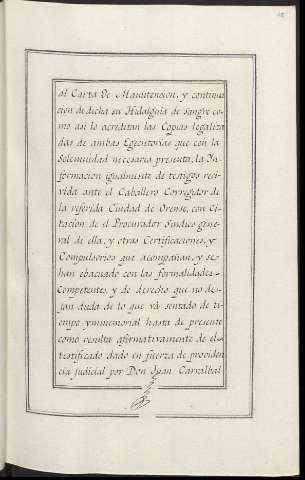 al Carta de Manutencion, y continua
cion de dicha su Hidalguia de sangre co-
mo asi lo acreditan las Copias legaliza
das de ambas Egecutorias que con la
Solemnidad necesaria presenta, la In-
formacion igualmente de testigos reci-
vida ante el Caballero Corregidor de
la referida Ciudad de Orense, con Ci-
tacion de el Procurador Sindico gene
ral de ella, y otras Certificaciones, y
Compulsorios que acompañan, y se
han ebacuado con las formalidades
Competentes, y de derecho que no de-
jan duda de lo que và sentado de ti-
empo ymmemorial hasta de presente
como resulta afirmativamente de el
testificado dado en fuerza de providen
cia judicial por Don Juan Carralbal